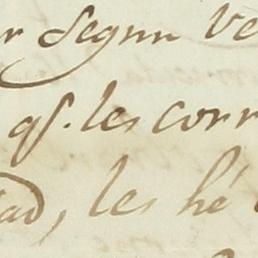 r segun ve
qs. les corr
ad, les hé